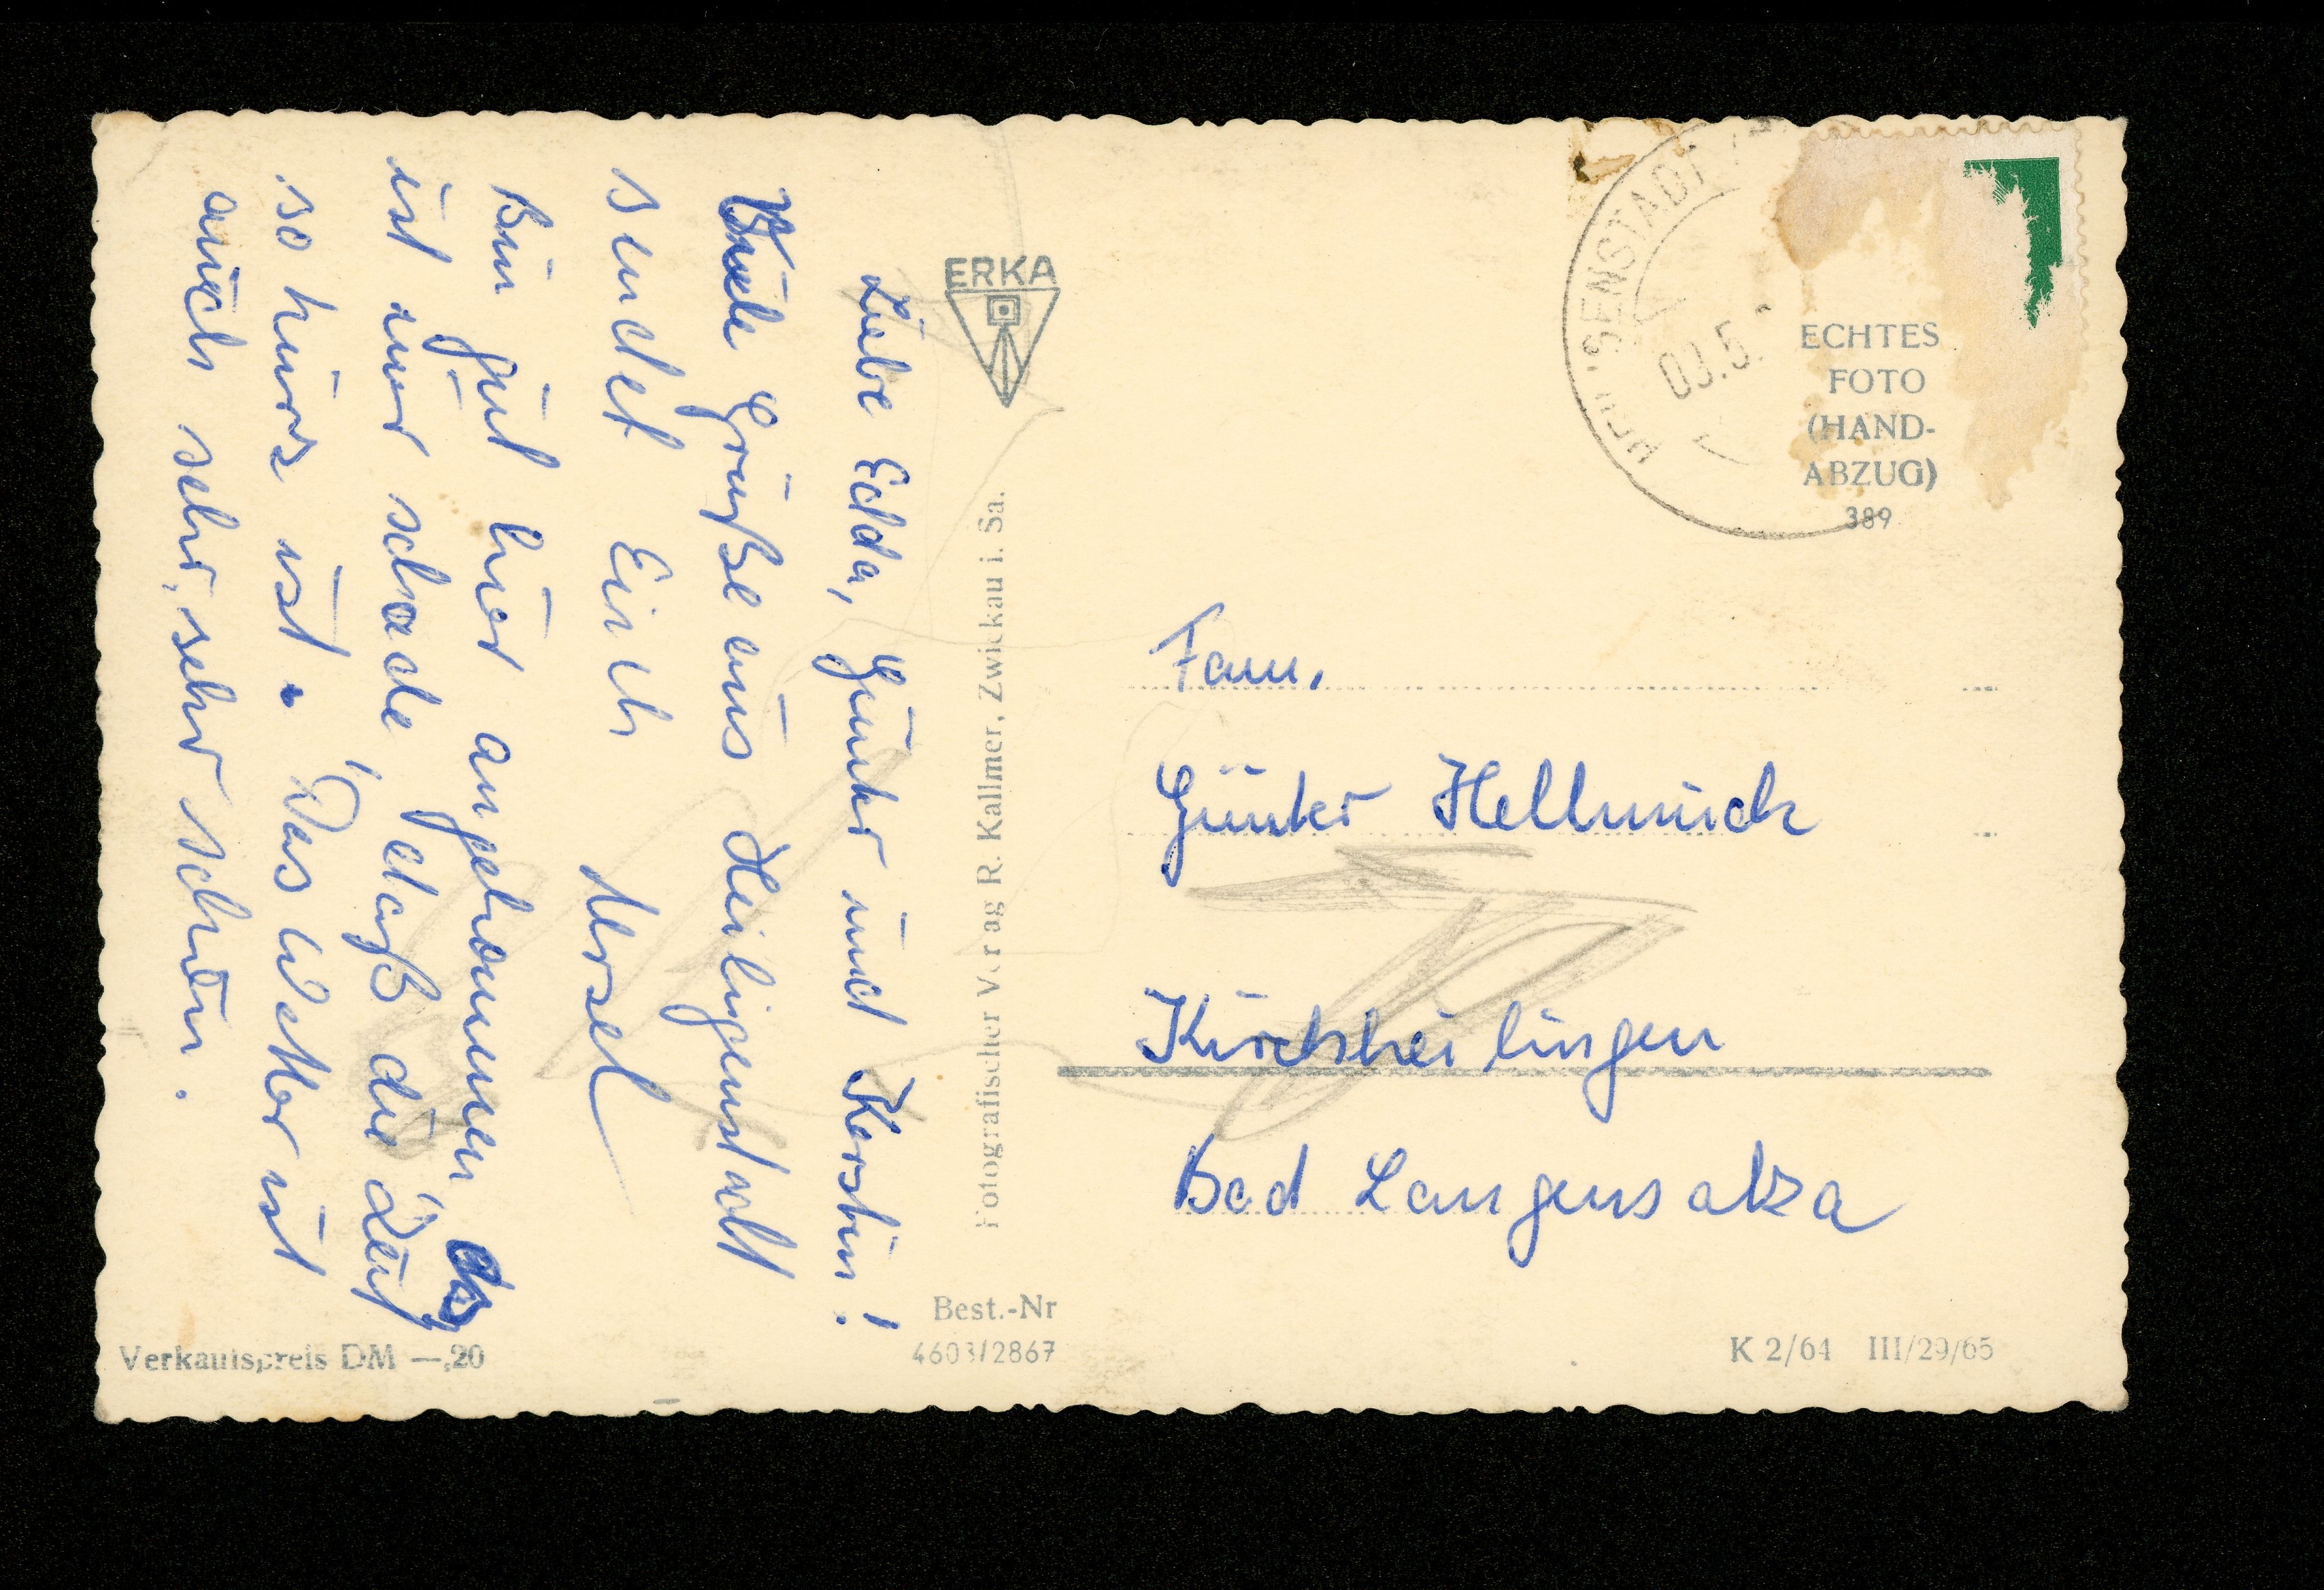 Liebe Edda, Günter und Kerstin!
Viele Grüße aus Heiligenstadt
sendet Euch Ursel
Bin gut hier angekommen
ist nur schade, daß die Zeit
so kurz ist. Das Wetter ist
auch sehr, sehr schön.
ERKA
Fotografischer Verlag R. Kallmer, Zwickau i. Sa.
ECHTES
FOTO
(HAND-
ABZUG)
389
Fam.
Günter Hellmich
Kirchheilingen
Bad Langensalza
Verkaufspreis DM —,20
Best.-Nr
4603/2867
K 2/64 III/29/65